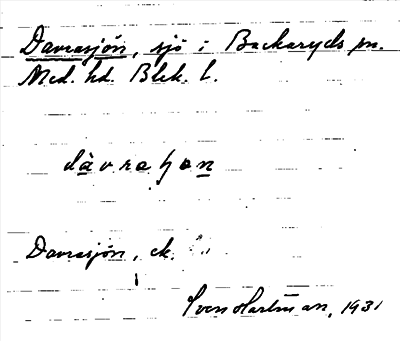 Davrasjön, sjö i Backaryds sn.
Med. hd. Blek. l.
dàvrahọn
Davrasjön, ek.
Sven Hartman, 1931